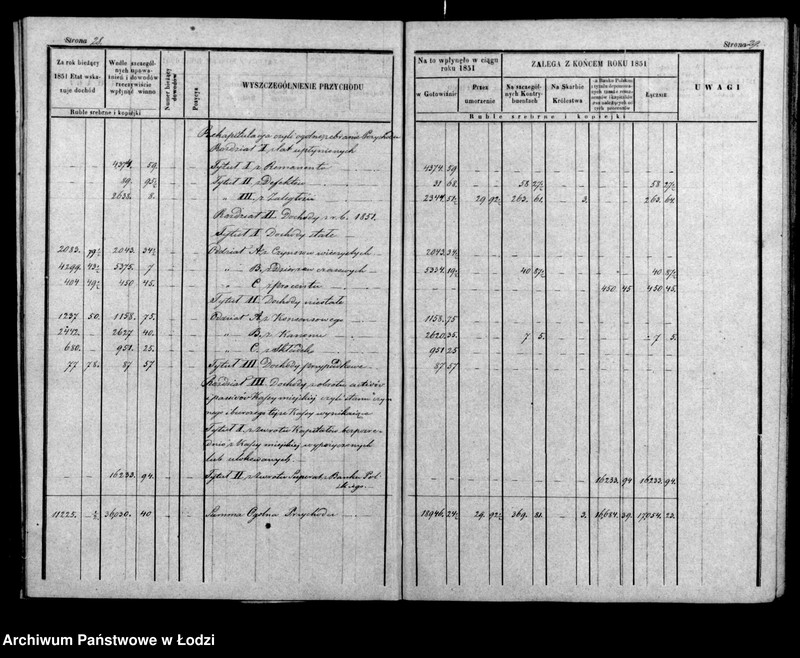 Strona 28.
Za rok bieżący 1851 Etat wskazuje dochód
Wedle szczególnych upoważnień i dowodów rzeczywiście wpłynąć winno
Numer bieżący dowodów
Pozycja
WYSZCZEGÓLNIENIE PRZYCHODU
Ruble srebrne i kopiejki
Rekapitulacja czyli ogólne zebranie Przychodu
Rozdział I z lat upłynionych
4374. 59. Tytuł I z Remanentu
89. 95½ Tytuł II z Defektów
2638. 8. " III. z Zaległości
Rozdział II. Dochody z r. b. 1851.
Tytuł I. Dochody stałe
2083. 79½ 2043. 34½ Oddział A. z Czynszów wieczystych
4299. 43½ 5375. 7 " B. z Dzierżaw czasowych
404 49½ 450 45. " C. z procentu
Tytuł II. Dochody niestałe
1237 50. 1158. 75. Oddział A. z Konsensowego
2442. 2627 40. " B. z Kanonu
680. 951. 25. " C. z Składek
77 78. 87 57 Tytuł III Dochody przypadkowe
Rozdział III. Dochody z obrotu activów
i passivów Kassy miejskiej czyli stanu czynnego i biernego tejże Kassy wynikające
Tytuł I. z zwrotu Kapitałów bezpośrednio z Kassy miejskiej wypożyczonych
lub ulokowanych
16233. 94. Tytuł II. z zwrotu Superat z Banku Polskiego
11225. ½ 36030. 40 Summa Ogólna Przychodu
Strona 29.
Na to wpłynęło w ciągu roku 1851
ZALEGA Z KOŃCEM ROKU 1851
UWAGI
w Gotowiźnie
Przez umorzenie
Na szczególnych Kontrybuentach
Na Skarbie Królestwa
Łącznie
Ruble srebrne i kopiejki
4374. 59
31 68. 58 27½ 58 27½
2344. 51½ 29 92½ 263. 61. 3. 263. 64.
2043. 34½
5334. 19½ 40 87½ 40 87½
450. 45 450 45.
1158. 75
2620. 35. 7 5. 7 5.
951 25
87 57
16233. 94 16233. 94.
18946. 24½ 29. 92½ 369. 81. 3. 16684. 39. 17054. 23.
Archiwum Państwowe w Łodzi